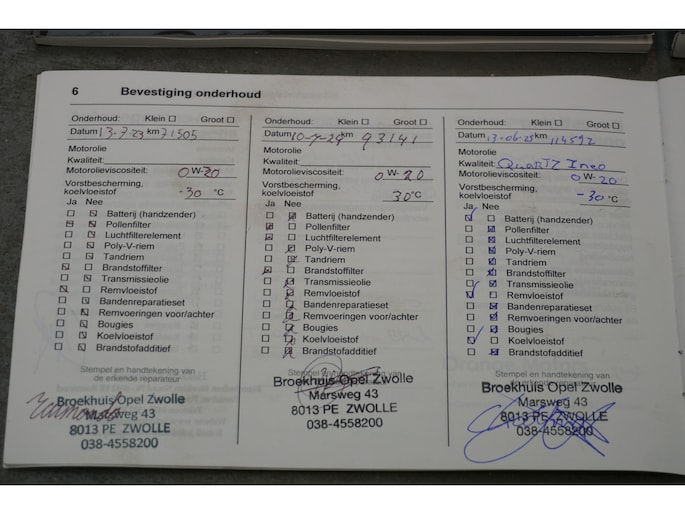 6 Bevestiging onderhoud
Onderhoud: Klein ☐ Groot ☐
Datum 13-7-23 km 71505
Motorolie
Kwaliteit:
Motorolieviscositeit: 0W-20
Vorstbescherming,
koelvloeistof -30 °C
Ja Nee
Batterij (handzender)
Pollenfilter
Luchtfilterelement
Poly-V-riem
Tandriem
Brandstoffilter
Transmissieolie
Remvloeistof
Bandenreparatieset
Remvoeringen voor/achter
Bougies
Koelvloeistof
Brandstofadditief
Stempel en handtekening van
de erkende reparateur
Broekhuis Opel Zwolle
Marsweg 43
8013 PE ZWOLLE
038-4558200
Onderhoud: Klein ☐ Groot ☐
Datum 10-7-24 km 93141
Motorolie
Kwaliteit:
Motorolieviscositeit: 0W-20
Vorstbescherming,
koelvloeistof 30 °C
Ja Nee
Batterij (handzender)
Pollenfilter
Luchtfilterelement
Poly-V-riem
Tandriem
Brandstoffilter
Transmissieolie
Remvloeistof
Bandenreparatieset
Remvoeringen voor/achter
Bougies
Koelvloeistof
Brandstofadditief
Stempel en handtekening van
Broekhuis Opel Zwolle
Marsweg 43
8013 PE ZWOLLE
038-4558200
Onderhoud: Klein ☐ Groot ☐
Datum 13-06-25 km 114592
Motorolie
Kwaliteit: Quartz Ineo
Motorolieviscositeit: 0W-20
Vorstbescherming,
koelvloeistof -30 °C
Ja Nee
Batterij (handzender)
Pollenfilter
Luchtfilterelement
Poly-V-riem
Tandriem
Brandstoffilter
Transmissieolie
Remvloeistof
Bandenreparatieset
Remvoeringen voor/achter
Bougies
Koelvloeistof
Brandstofadditief
Stempel en handtekening van
Broekhuis Opel Zwolle
Marsweg 43
8013 PE ZWOLLE
038-4558200